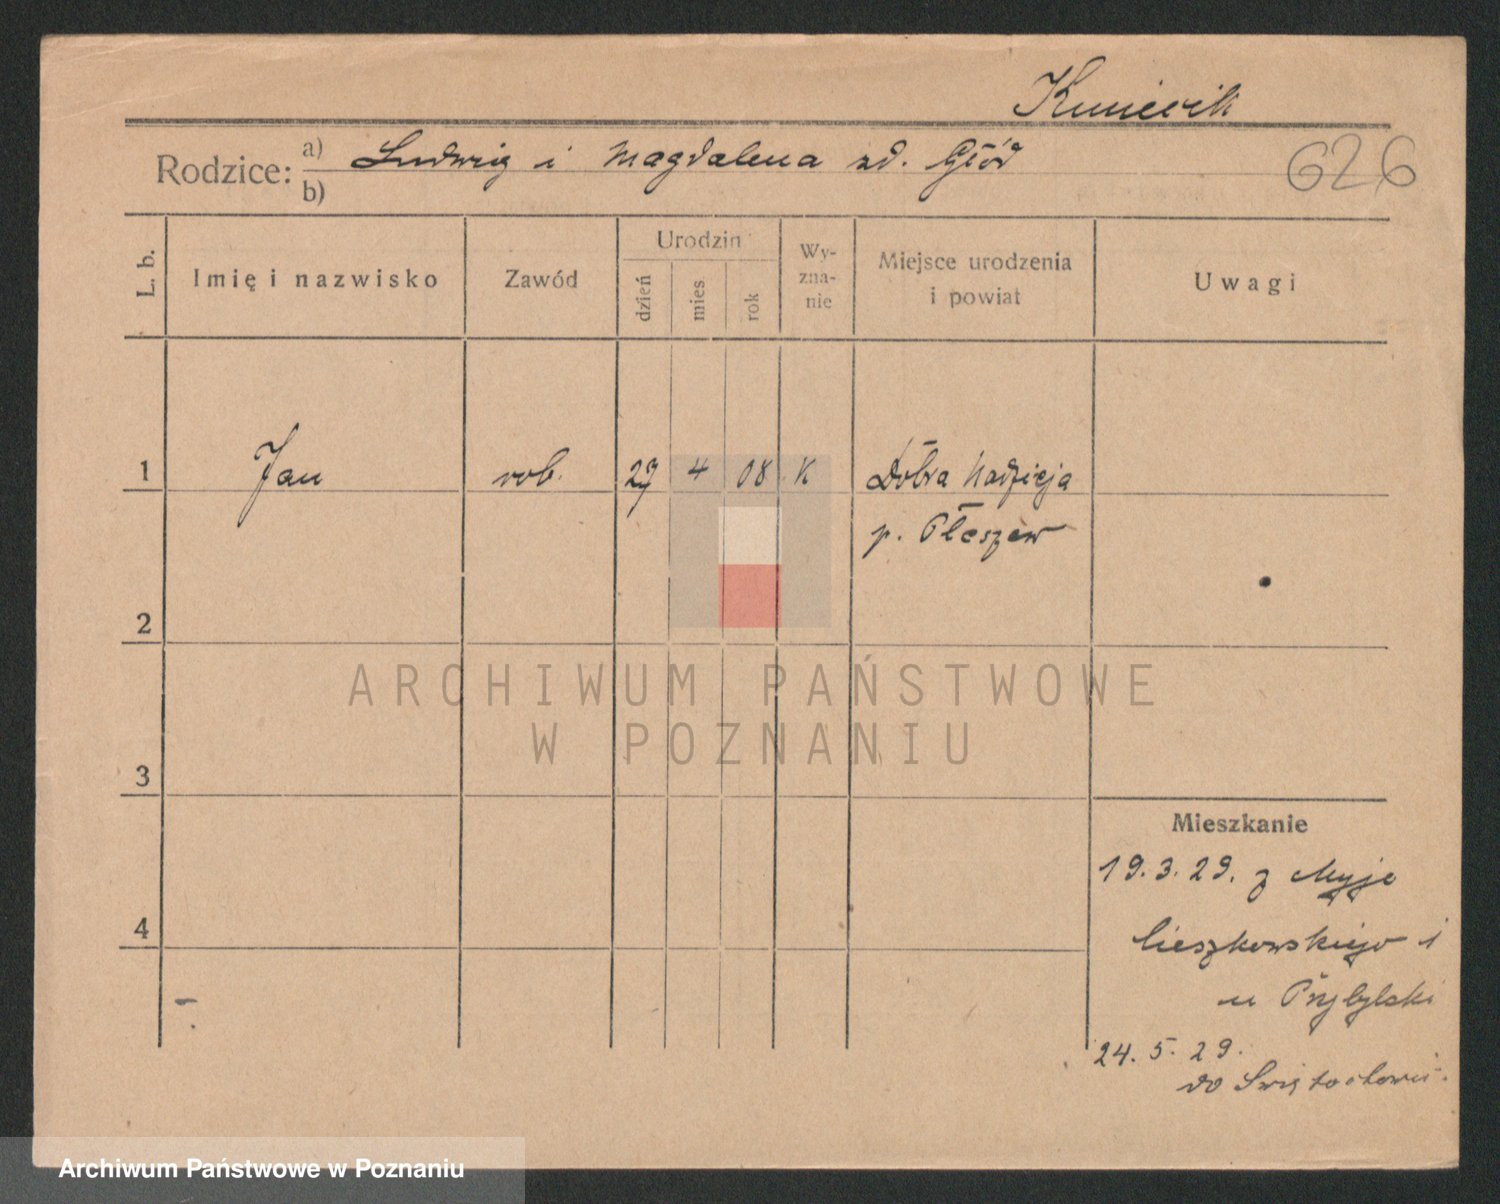 Kuniecik
Rodzice: a) Ludwig i Magdalena zd. Głód
b)
626
L. b.
Imię i nazwisko
Zawód
Urodzin
dzień
mies
rok
Wy-
zna-
nie
Miejsce urodzenia
i powiat
Uwagi
1 Jan rob. 27 4 08 K Dobra Nadzieja
p. Pleszew
2
ARCHIWUM PAŃSTWOWE
W POZNANIU
3
Mieszkanie
19.3.29. z
4
Cieszkowskiego 1
u Przybylski
24.5.29.
do Świętochłowic.
Archiwum Państwowe w Poznaniu